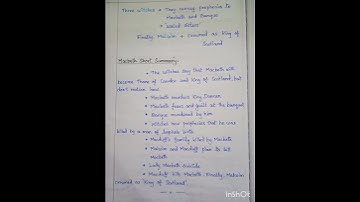 Three witches → They convey prophecies to
Macbeth and Banquo
→ "weird sisters"
Finally Malcolm → Crowned as King of
Scotland
Macbeth Short Summary:-
• The witches say that Macbeth will
become Thane of Cawdor and King of Scotland, but
don't mention how.
• Macbeth murders King Duncan
• Macbeth fears and guilt at the banquet
• Banquo murdered by him
• Witches new prophecies that he was
killed by a man of
birth
• Macduff's family killed by Macbeth
• Malcolm and Macduff plan to kill
Macbeth
• Lady Macbeth suicide
• Macduff kills Macbeth. Finally, Malcolm
crowned as "King of Scotland".
InShOt